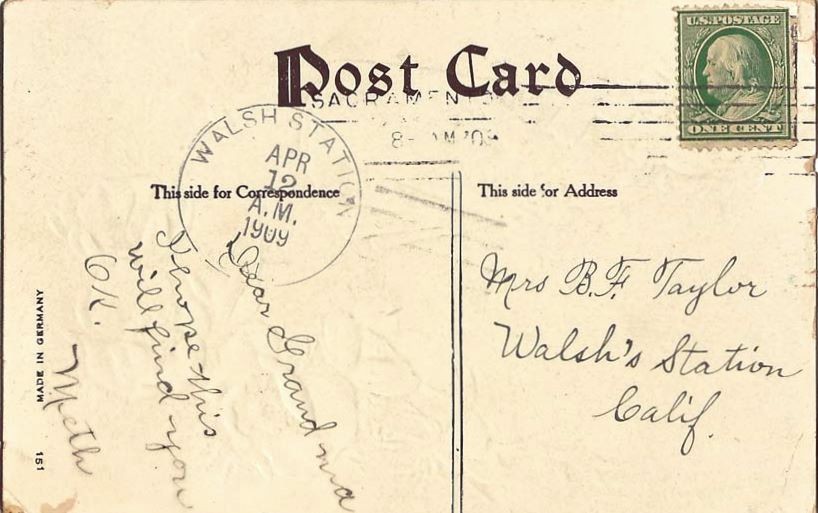 Post Card
U.S. POSTAGE
ONE CENT
SACRAMENTO
8- AM '09
WALSH STATION
APR
12
A.M.
1909
This side for Correspondence
This side for Address
Dear Grandma
I hope this
will find you
OK.
Meth
Mrs B.F. Taylor
Walsh's Station
Calif.
MADE IN GERMANY
151